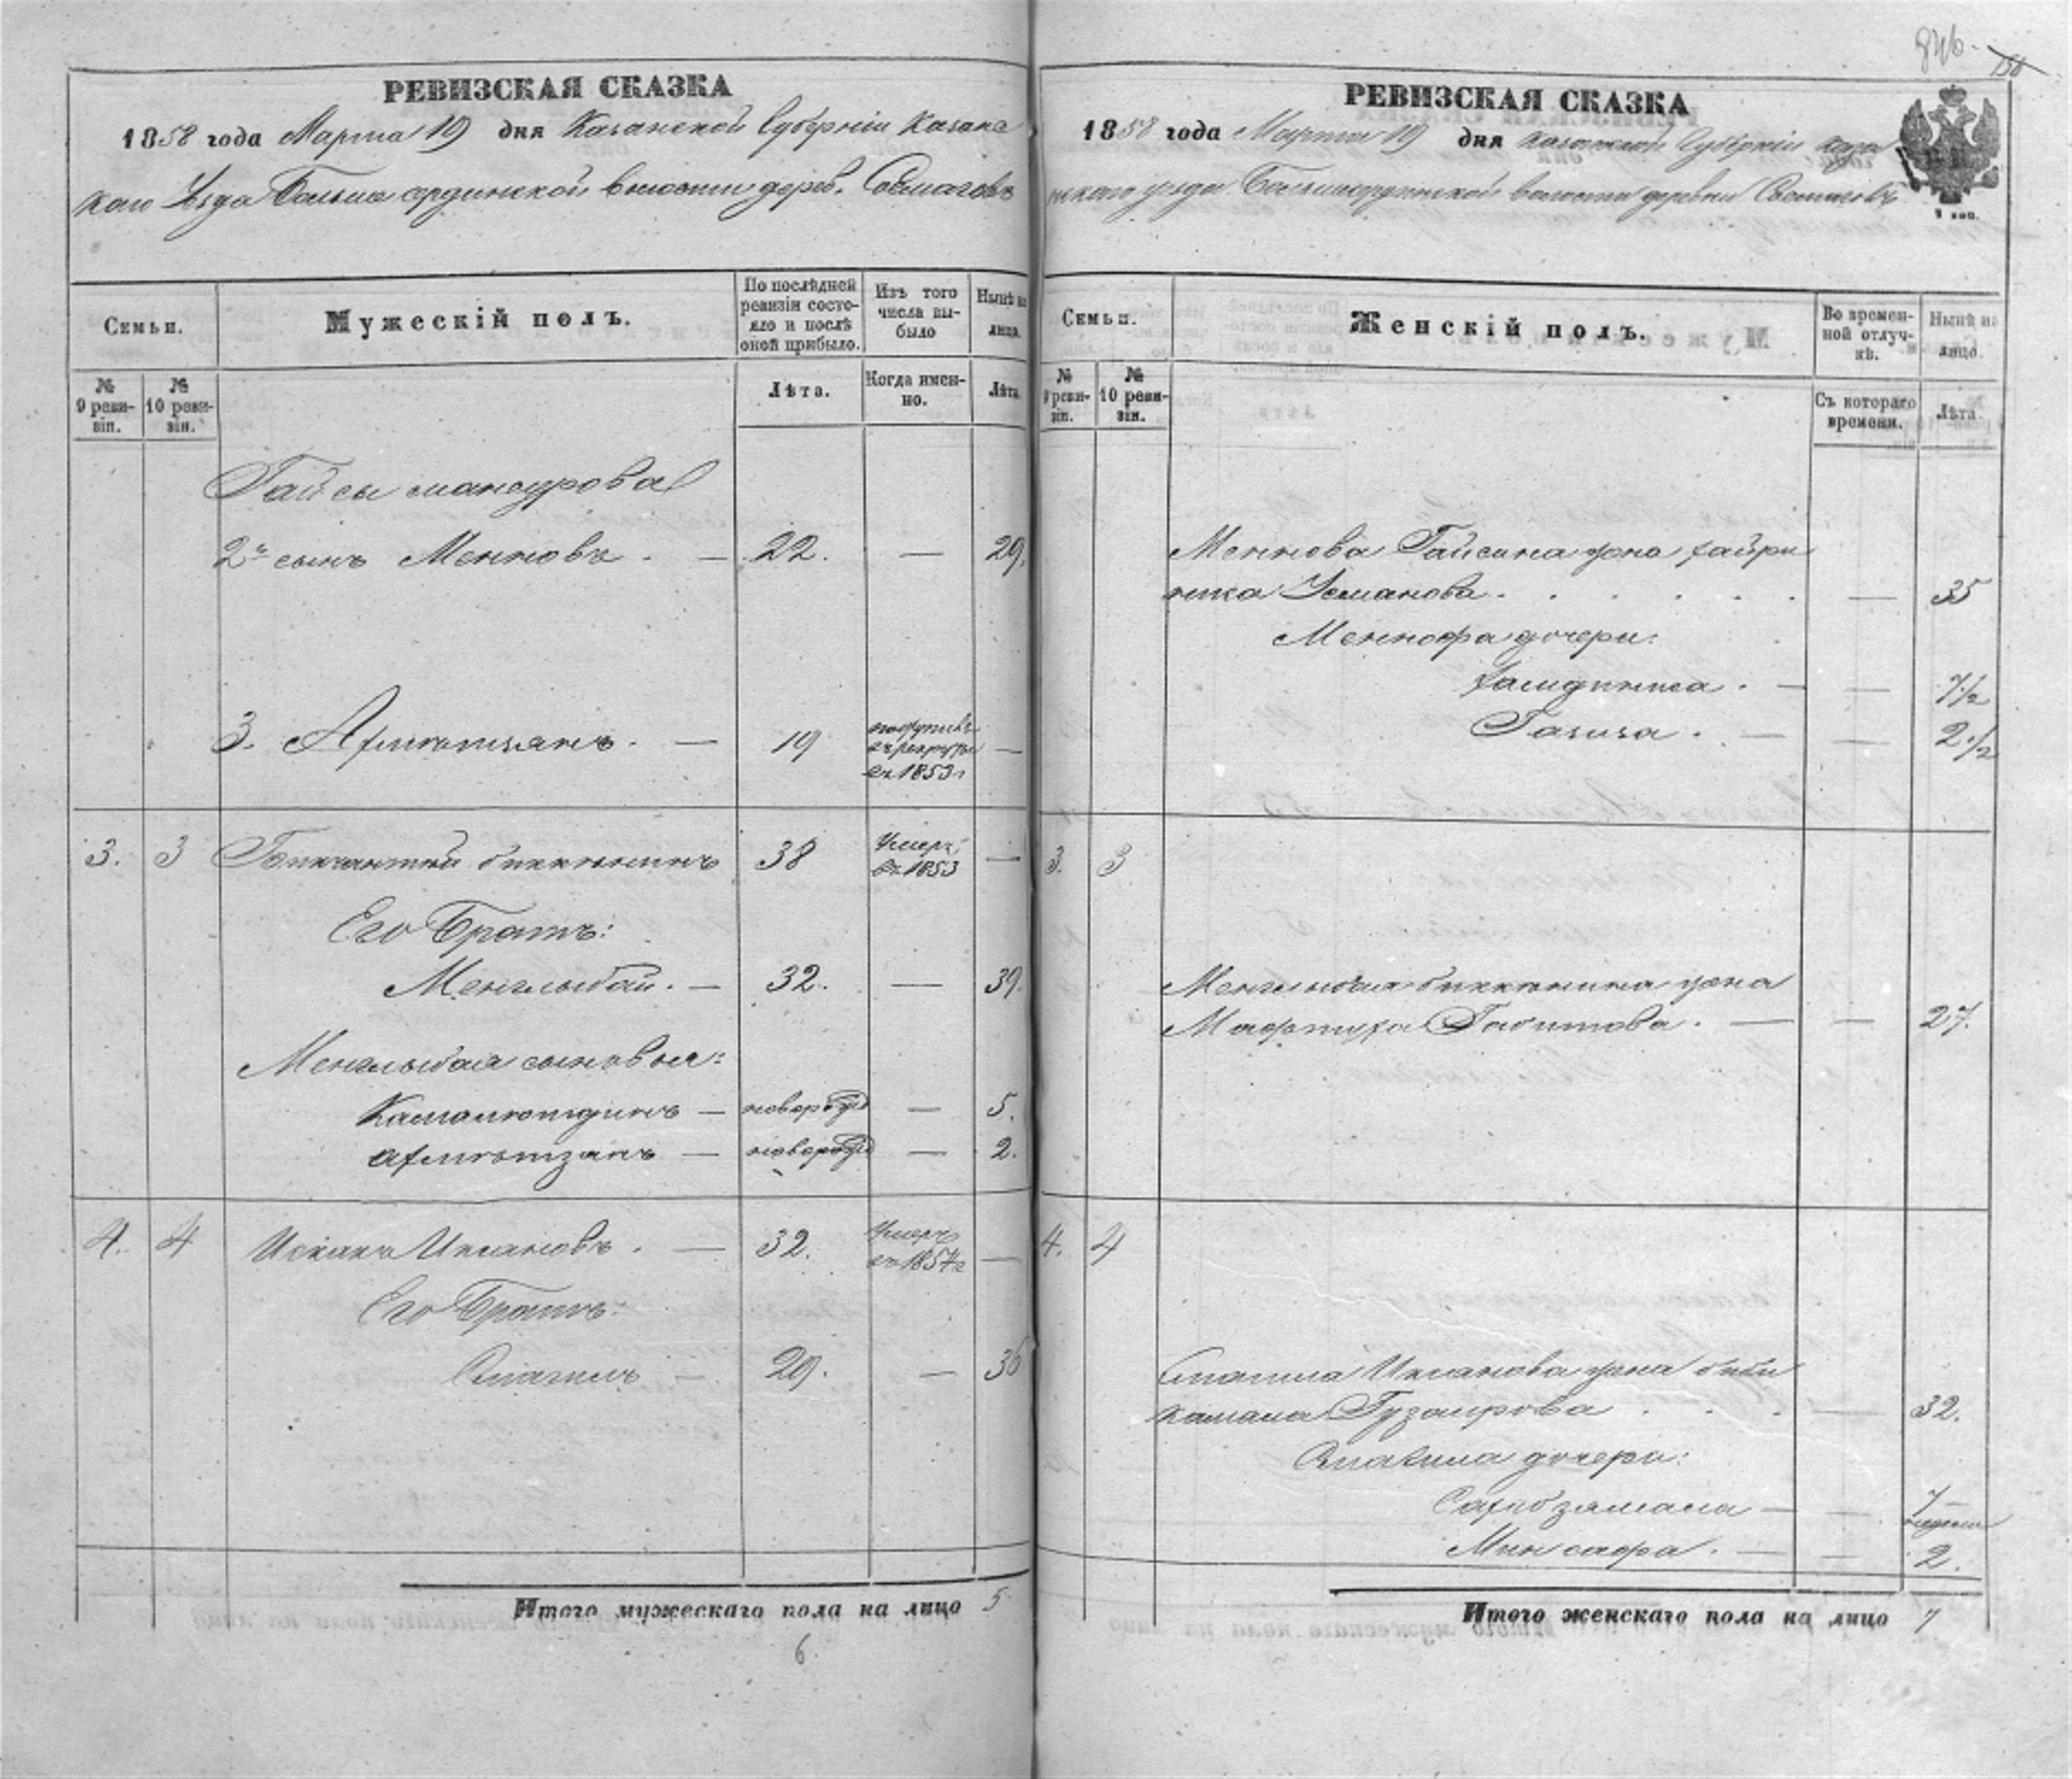 846. 150
РЕВИЗСКАЯ СКАЗКА
1858 года Марта 19 дня Казанской Губерніи Казанс
каго Уезда Больше ординской волости дерев.
Семьи.
Мужескій полъ.
По послѣдней ревизіи состояло и послѣ оной прибыло.
Изъ того числа выбыло
Нынѣ на лицо.
№ 9 ревизіи.
№ 10 ревизіи.
Лѣта.
Когда именно.
Лѣта.
Гайсы мансурова
2й сынъ Менновъ . — 22. — 29.
3. Ахметжанъ . — 19 въ рекруты въ 1853 г —
3. 3 Бикчантай биккининъ 38 Умеръ въ 1853 —
Его Братъ:
Менглыбай. — 32. — 39.
Менглыбая сыновья:
Камалютдинъ — новорожд — 5.
Ахметзянъ — новорожд — 2.
4. 4 Исхакъ Ихсановъ . — 32. Умеръ въ 1857 г —
Его Братъ:
Смагилъ — 29. — 36
Итого мужескаго пола на лицо 5
6.
РЕВИЗСКАЯ СКАЗКА
1858 года Марта 19 дня казанской Губерніи каза
нскаго уезда Большеординской волости деревни
1 коп.
Семьи.
Женскій полъ.
Во временной отлучкѣ.
Нынѣ на лицо.
№ 9 ревизіи.
№ 10 ревизіи.
Съ котораго времени.
Лѣта.
Меннова Гайсина жена хайри
ниса Усманова . . . . . . — 35
Меннофа дочери:
Хамидниса . — — 7½
Газиза . — — 2½
3. 3
Менглыбая биккинина жена
Мафтуха Габитова . — — 27.
4. 4
Смагила Ихсанова жена биби
камала Губаирова . . . — 32.
Смагила дочери:
Сахибзямала — — 7 недели
Минсафа . — — 2.
Итого женскаго пола на лицо 7